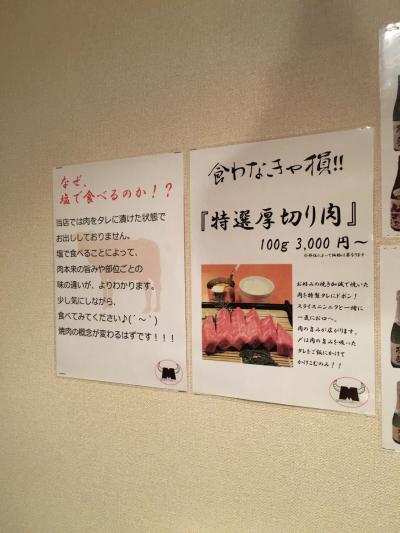 なぜ、
塩で食べるのか！？
当店では肉をタレに漬けた状態で
お出ししておりません。
塩で食べることによって、
肉本来の旨みや部位ごとの
味の違いが、よりわかります。
少し気にしながら、
食べてみてください♪(´～｀)
焼肉の概念が変わるはずです！！！
M
食わなきゃ損!!
『特選厚切り肉』
100g 3,000 円～
※部位によって価格は異なります
お好みの焼き加減で焼いた
肉を特製タレにドボン！
スライスニンニクと一緒に
一気にお口へ。
肉の旨みが広がります。
〆は肉の旨みを吸った
タレをご飯にかけて
かけこむのみ！！
M